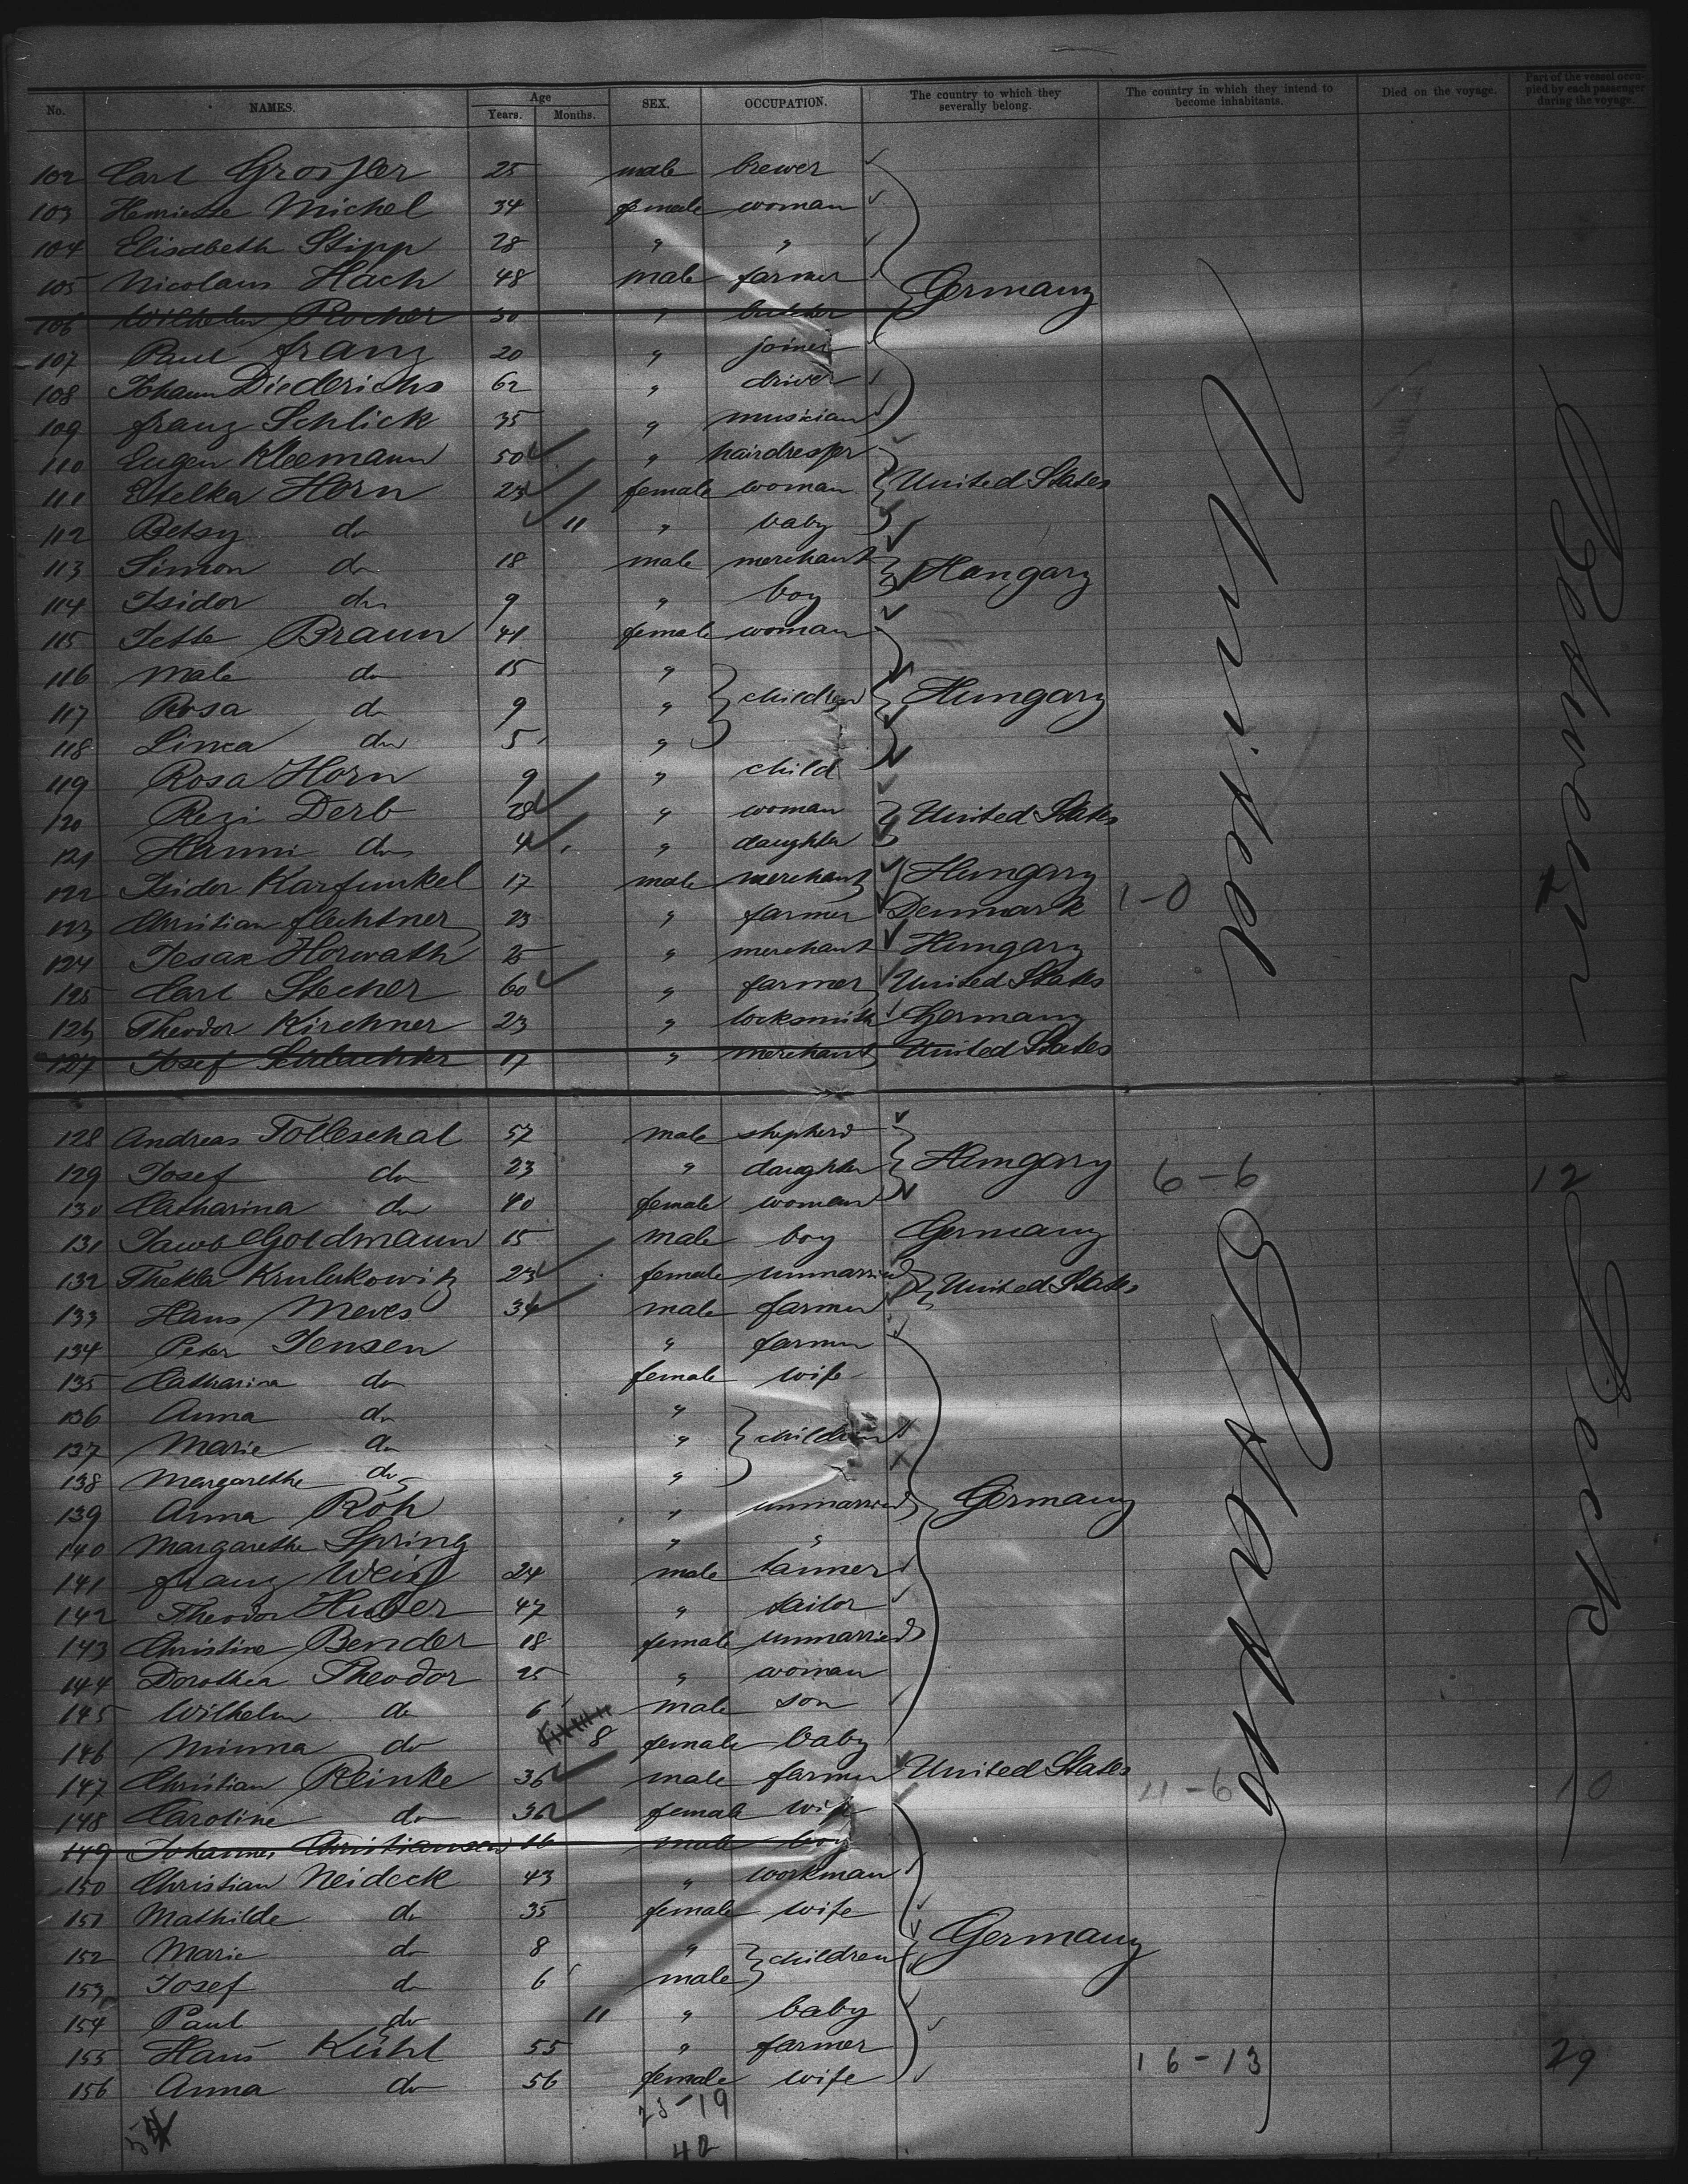 No. NAMES. Age Years. Months. SEX. OCCUPATION. The country to which they severally belong. The country in which they intend to become inhabitants. Died on the voyage. Part of the vessel occupied by each passenger during the voyage.
102 Carl 25 male brewer
103 Henriette Michel 34 female woman
104 Elisabeth Stipp 28 " "
105 Nicolaus Hach 48 male farmer Germany
106 Wilhelm 30 " butcher
107 Paul Franz 20 " joiner
108 Johann Diederichs 62 " driver
109 Franz Schlick 35 " musician
110 Eugen Kleemann 50 " hairdresser
111 Etelka Horn 23 female woman United States
112 Betsy do 11 " baby
113 Simon do 18 male merchant Hungary
114 Isidor do 9 " boy
115 Jette Braun 41 female woman
116 Male do 15 "
117 Rosa do 9 " children Hungary
118 do 5 "
119 Rosa Horn 9 " child
120 Rezi Derb 28 " woman United States
121 Hanni do 4 " daughter
122 Isidor Karfunkel 17 male merchant Hungary
123 Christian Flechtner 23 " farmer Denmark 1-0
124 Horwath 25 " merchant Hungary
125 Carl Stecher 60 " farmer United States
126 Theodor Kirchner 23 " locksmith Germany
127 Josef 17 " merchant United States
United States
Between
128 Andreas Tolleschal 57 male shepherd
129 Josef do 23 " daughter Hungary 6-6 12
130 Catharina do 40 female woman
131 Jacob Goldmann 15 male boy Germany
132 Thekla 23 female unmarried United States
133 Hans Meves 34 male farmer
134 Peter Jensen " farmer
135 Catharina do female wife
136 Anna do "
137 Marie do " children
138 Margarethe do "
139 Anna Roh " unmarried Germany
140 Margarethe Spring " "
141 Franz Weiss 24 male tanner
142 Theodor Huber 47 " tailor
143 Christine Bender 18 female unmarried
144 Dorothea Theodor 25 " woman
145 Wilhelm do 6 male son
146 Minna do 8 female baby
147 Christian Reinke 36 male farmer United States 4-6 10
148 Caroline do 36 female wife
149 Johannes Christiansen 16 male boy
150 Christian Neideck 43 " workman
151 Mathilde do 35 female wife Germany
152 Marie do 8 " children
153 Josef do 6 male
154 Paul do 11 " baby
155 Hans Kühl 55 " farmer 16-13 29
156 Anna do 56 female wife
Deck
23-19
42